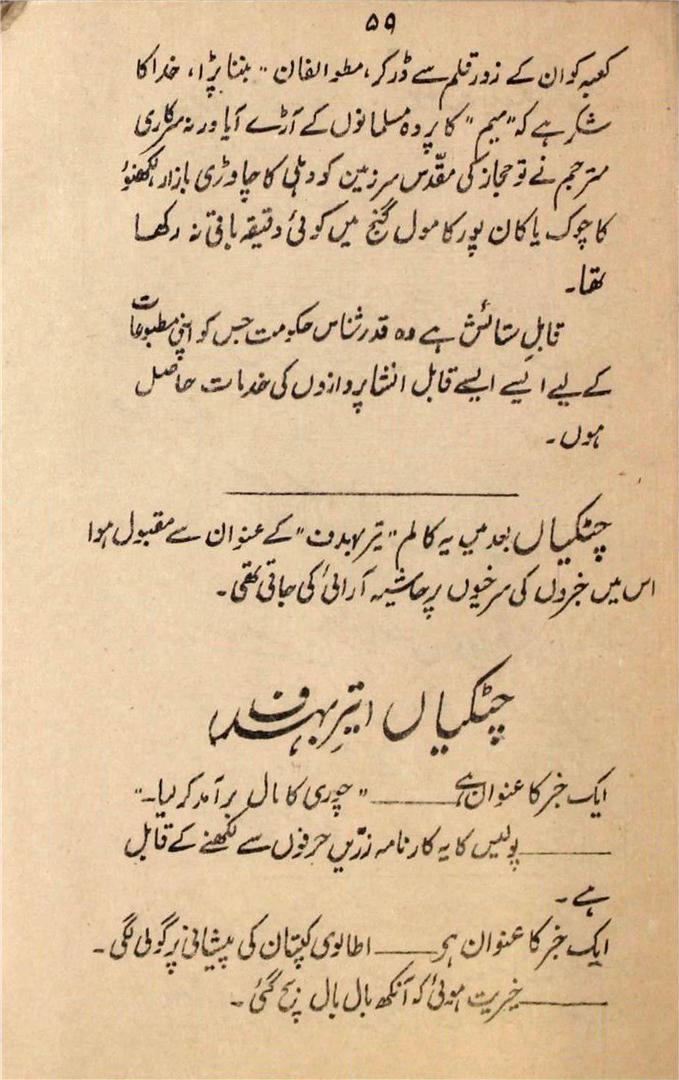 ۵۹
کعبہ کو ان کے زور قلم سے ڈر کر، مطوالفان" بننا پڑا، خدا کا
شکر ہے کہ "میم" کا پردہ مسلمانوں کے آڑے آیا ورنہ سرکاری
مترجم نے تو حجاز کی مقدّس سرزمین کو دہلی کا چاوڑی بازار لکھنؤ
کا چوک یا کان پور کا مول گنج میں کوئی دقیقہ باقی نہ رکھا
تھا۔
قابلِ ستائش ہے وہ قدر شناس حکومت جس کو اپنی مطبوعات
کے لیے ایسے ایسے قابل انشا پردازوں کی خدمات حاصل
ہوں۔
چٹکیاں بعد میں یہ کالم "تیر بہدف" کے عنوان سے مقبول ہوا
اس میں خبروں کی سرخیوں پر حاشیہ آرائی کی جاتی تھی۔
چٹکیاں (تیرِ بہدف)
ایک خبر کا عنوان ہے ــــــ "چوری کا مال برآمد کر لیا۔"
ــــــ پولیس کا یہ کارنامہ زرّیں حرفوں سے لکھنے کے قابل
ہے۔
ایک خبر کا عنوان ہے ــــــ اطالوی کپتان کی پیشانی پر گولی لگی۔
ــــــ خیریت ہوئی کہ آنکھ بال بال بچ گئی۔